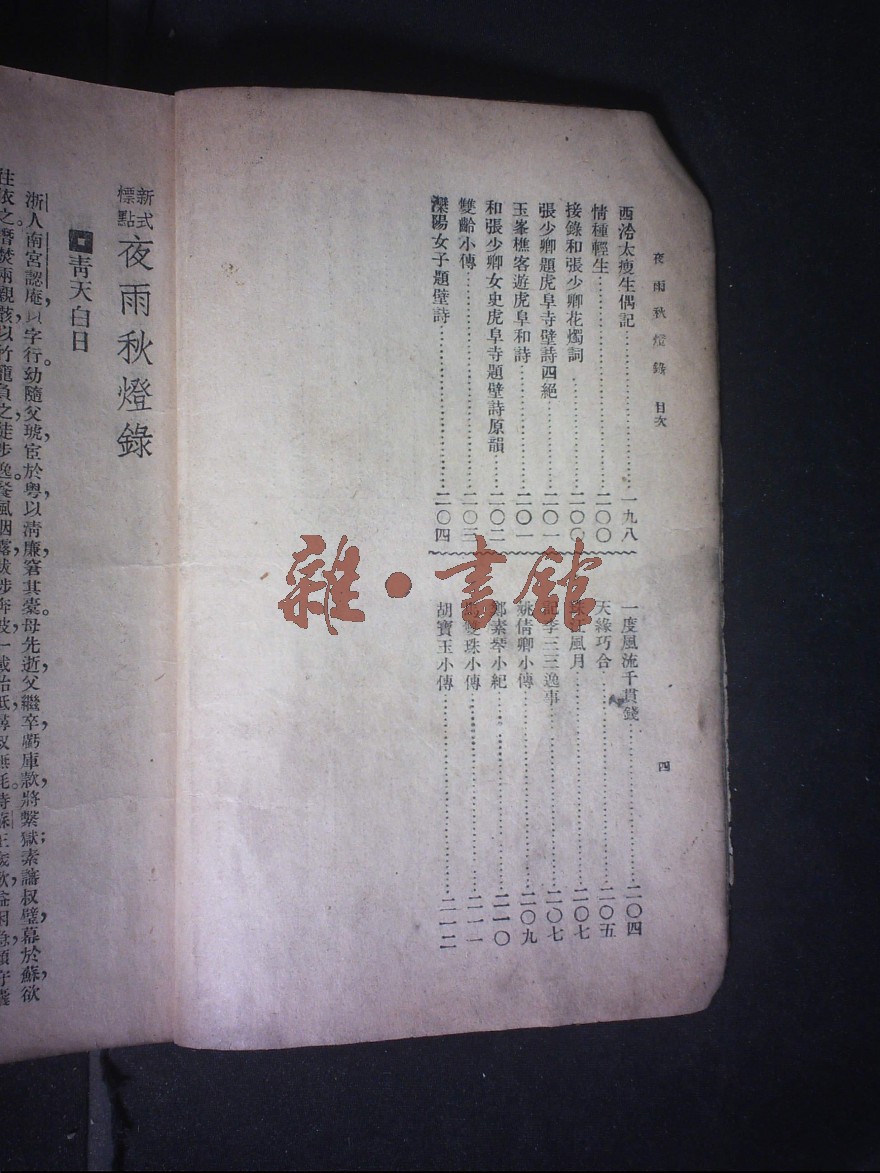 夜雨秋燈錄 目次
四
西泠太瘦生偶記……一九八
情種輕生……二〇〇
接錄和張少卿花燭詞……二〇〇
張少卿題虎阜寺壁詩四絕……二〇一
玉峯樵客遊虎阜和詩……二〇一
和張少卿女史虎阜寺題壁詩原韻……二〇二
雙齡小傳……二〇三
溧陽女子題壁詩……二〇四
一度風流千貫錢……二〇四
天緣巧合……二〇五
珠江風月……二〇七
記李三三逸事……二〇七
姚倩卿小傳……二〇九
鄭素琴小紀……二一〇
雙珠小傳……二一一
胡寶玉小傳……二一二
雜·書館
新式標點 夜雨秋燈錄
青天白日
浙人南宮認庵,以字行。幼隨父琥宦於粵,以清廉窘其橐,母先逝,父繼卒,虧庫款,將繫獄;素諳叔璧幕於蘇,欲